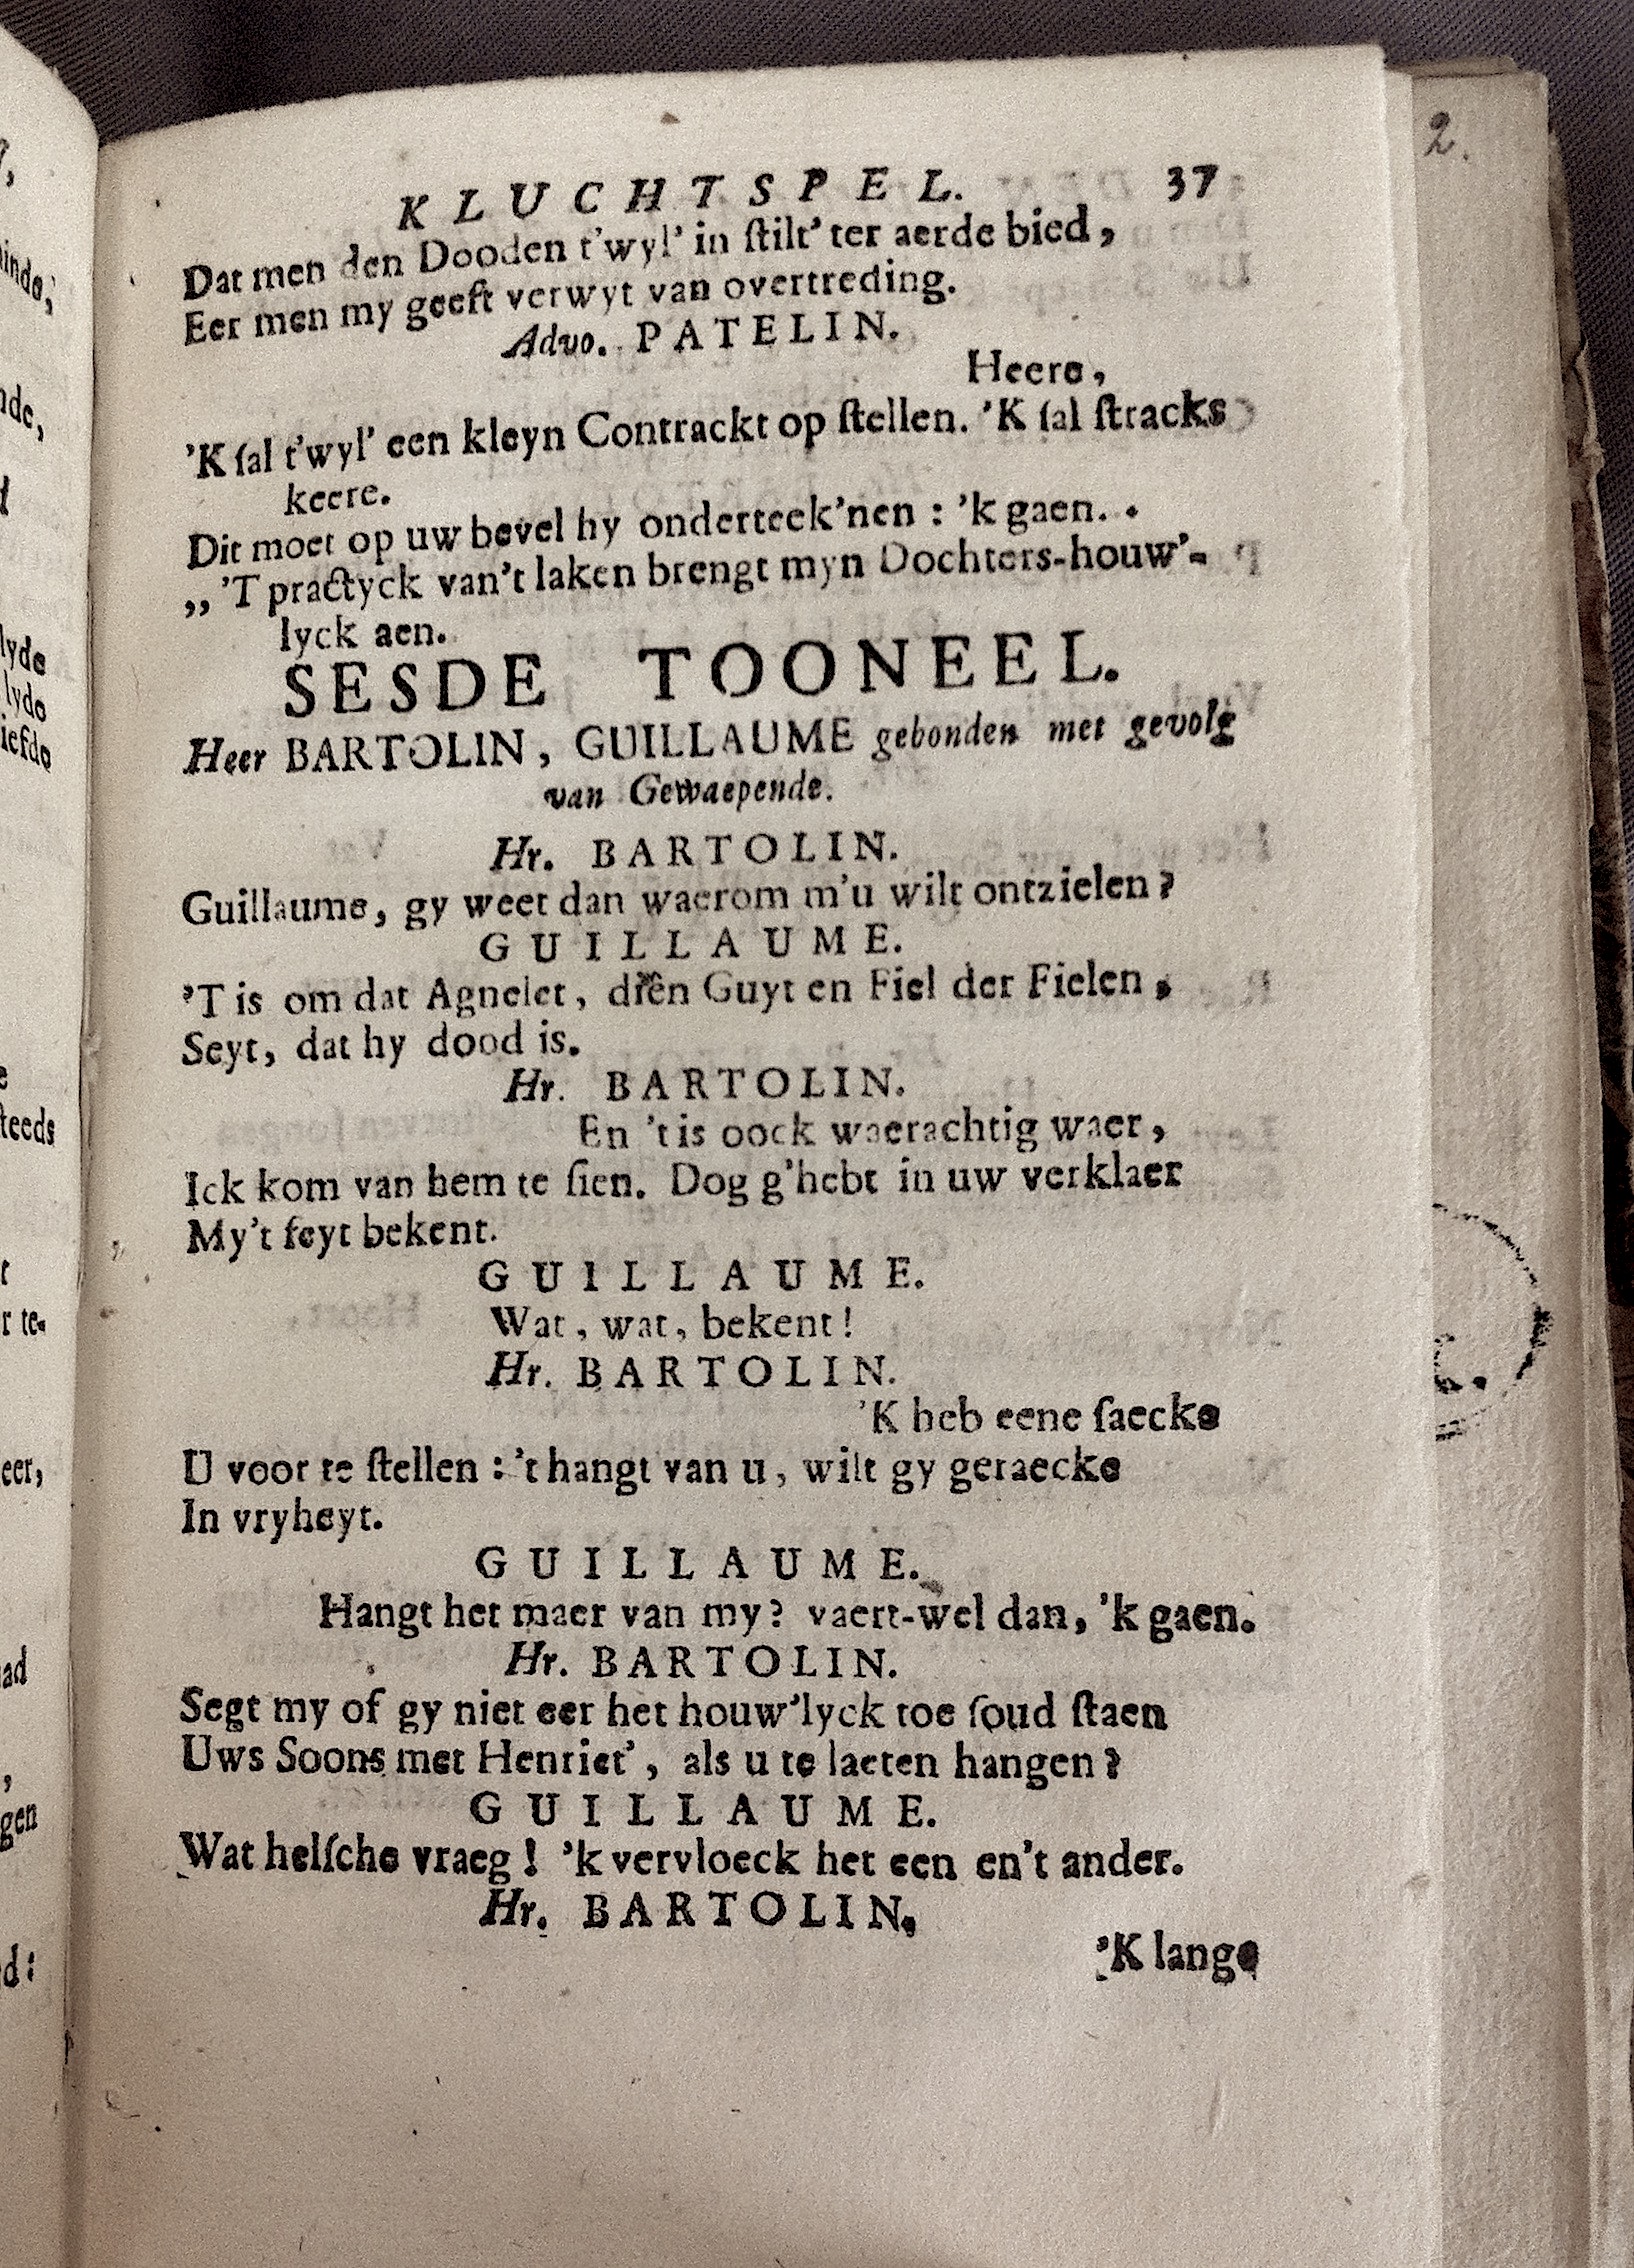 KLUCHTSPEL. 37
Dat men den Dooden t'wyl' in ſtilt' ter aerde bied,
Eer men my geeft verwyt van overtreding.
Advo. PATELIN.
Heere,
'K ſal t'wyl' een kleyn Contrackt op ſtellen. 'K ſal ſtracks
keere.
Dit moet op uw bevel hy onderteek'nen : 'k gaen. .
,, 'T practyck van't laken brengt myn Dochters-houw'-
lyck aen.
SESDE TOONEEL.
Heer BARTOLIN, GUILLAUME gebonden met gevolg
van Gewaepende.
Hr. BARTOLIN.
Guillaume, gy weet dan waerom m'u wilt ontzielen?
GUILLAUME.
'T is om dat Agnelet, diên Guyt en Fiel der Fielen,
Seyt, dat hy dood is.
Hr. BARTOLIN.
En 't is oock waerachtig waer,
Ick kom van hem te ſien. Dog g'hebt in uw verklaer
My't feyt bekent.
GUILLAUME.
Wat, wat, bekent!
Hr. BARTOLIN.
'K heb eene ſaecke
U voor te ſtellen : 't hangt van u, wilt gy geraecke
In vryheyt.
GUILLAUME.
Hangt het maer van my? vaert-wel dan, 'k gaen.
Hr. BARTOLIN.
Segt my of gy niet eer het houw'lyck toe ſoud ſtaen
Uws Soons met Henriet', als u te laeten hangen?
GUILLAUME.
Wat helſche vraeg! 'k vervloeck het een en't ander.
Hr. BARTOLIN.
'K lange
2.